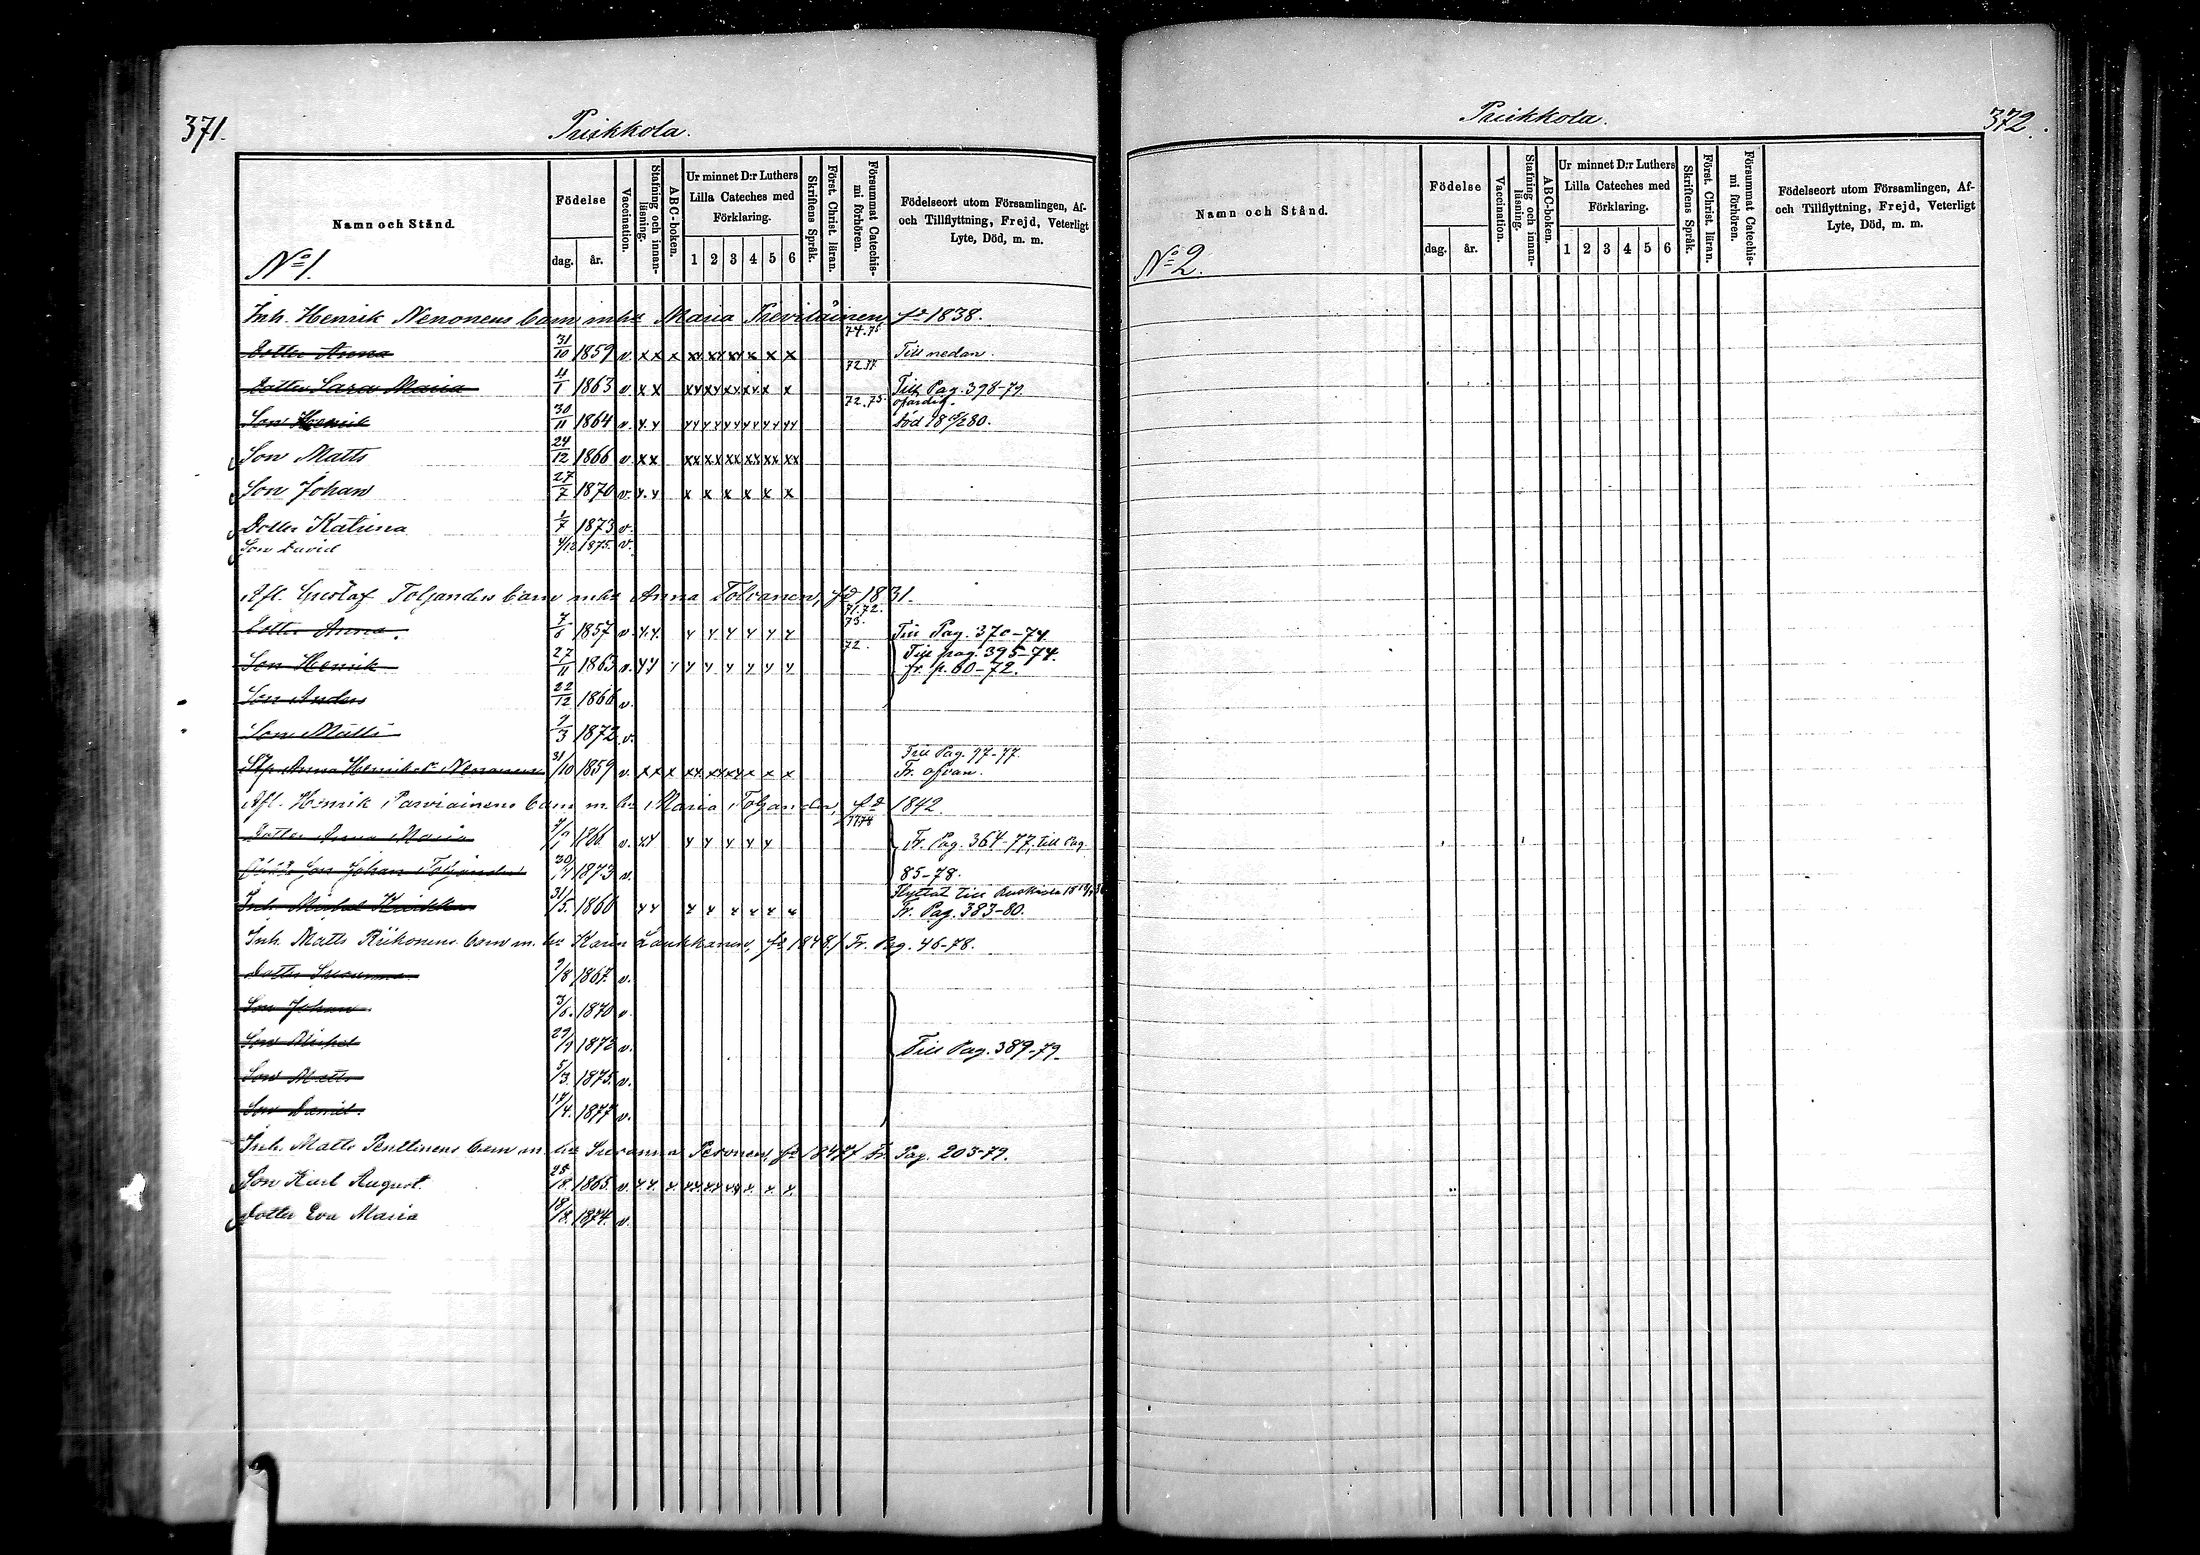 371.
Puikkola.
Namn och Stånd.
Födelse
dag. år.
Vaccination.
Stafning och innanläsning.
ABC-boken.
Ur minnet D:r Luthers Lilla Cateches med Förklaring.
1 2 3 4 5 6
Skriftens Språk.
Först. Christ. läran.
Försummat Catechismi förhören.
Födelseort utom Församlingen, Af- och Tillflyttning, Frejd, Veterligt Lyte, Död, m. m.
No 1.
Inh. Henrik Nenonens barn m. hu Maria fd 1838.
74.75
Dotter Anna 31/10 1859 v. x x x xx xx xx x x x Till nedan.
72
Dotter Sara Maria 4/1 1863 v x x Till Pag. 398-79.
72.75. ofärdig.
Son Henrik 30/11 1864 v. död
Son Matts 24/12 1866 v. xx xx xx xx xx xx xx
Son Johan 27/7 1870 v. x x x x x x
Dotter Katrina 1/7 1873 v.
Son David 4/12 1875. v.
Afl. Gustaf Toljanders barn m hu Anna Tolvanen, fd 1831.
71.72.
73.
Dotter Anna. 1857 v. Till Pag. 370-74
72. Till pag. 395-74.
Son Henrik 27/11 1863 v. fr. p. 60-72.
Son Anders 22/12 1866 v.
Son Matti 9/3 1872 v.
Till Pag. 97-77.
Anna Henriks dr Nenonen 31/10 1859 v. x x x xx xx xx x x x Fr. ofvan.
Afl. Henrik Parviainens barn m. hu Maria Toljander, fd 1842.
Dotter Anna Maria 1866 v. Fr. Pag. 364-77, till Pag.
Son Johan Toljander 1873 v. 85-78.
Flyttat till
Inh. Michel 31/5. 1860 Fr. Pag. 383-80.
Inh. Matts Riikonens barn m. hu Karin Laukkanen, fd 1848. / Fr. Pag. 46-78.
Dotter Susanna 9/8 1867. v.
Son Johan 3/6. 1870 v.
Son Michel 29/9 1872 v. Till Pag. 389-79.
Son Matts 5/3. 1875. v.
Son Daniel. 17/4. 1877 v.
Inh. Matts Penttinens barn m. hu Susanna Pesonen, fd 1847/ Fr. Pag. 203-79.
Son Karl August. 25/8. 1865. v.
Dotter Eva Maria 18/8. 1874. v.
Puikkola.
372.
Namn och Stånd.
Födelse
dag. år.
Vaccination.
Stafning och innanläsning.
ABC-boken.
Ur minnet D:r Luthers Lilla Cateches med Förklaring.
1 2 3 4 5 6
Skriftens Språk.
Först. Christ. läran.
Försummat Catechismi förhören.
Födelseort utom Församlingen, Af- och Tillflyttning, Frejd, Veterligt Lyte, Död, m. m.
No 2.